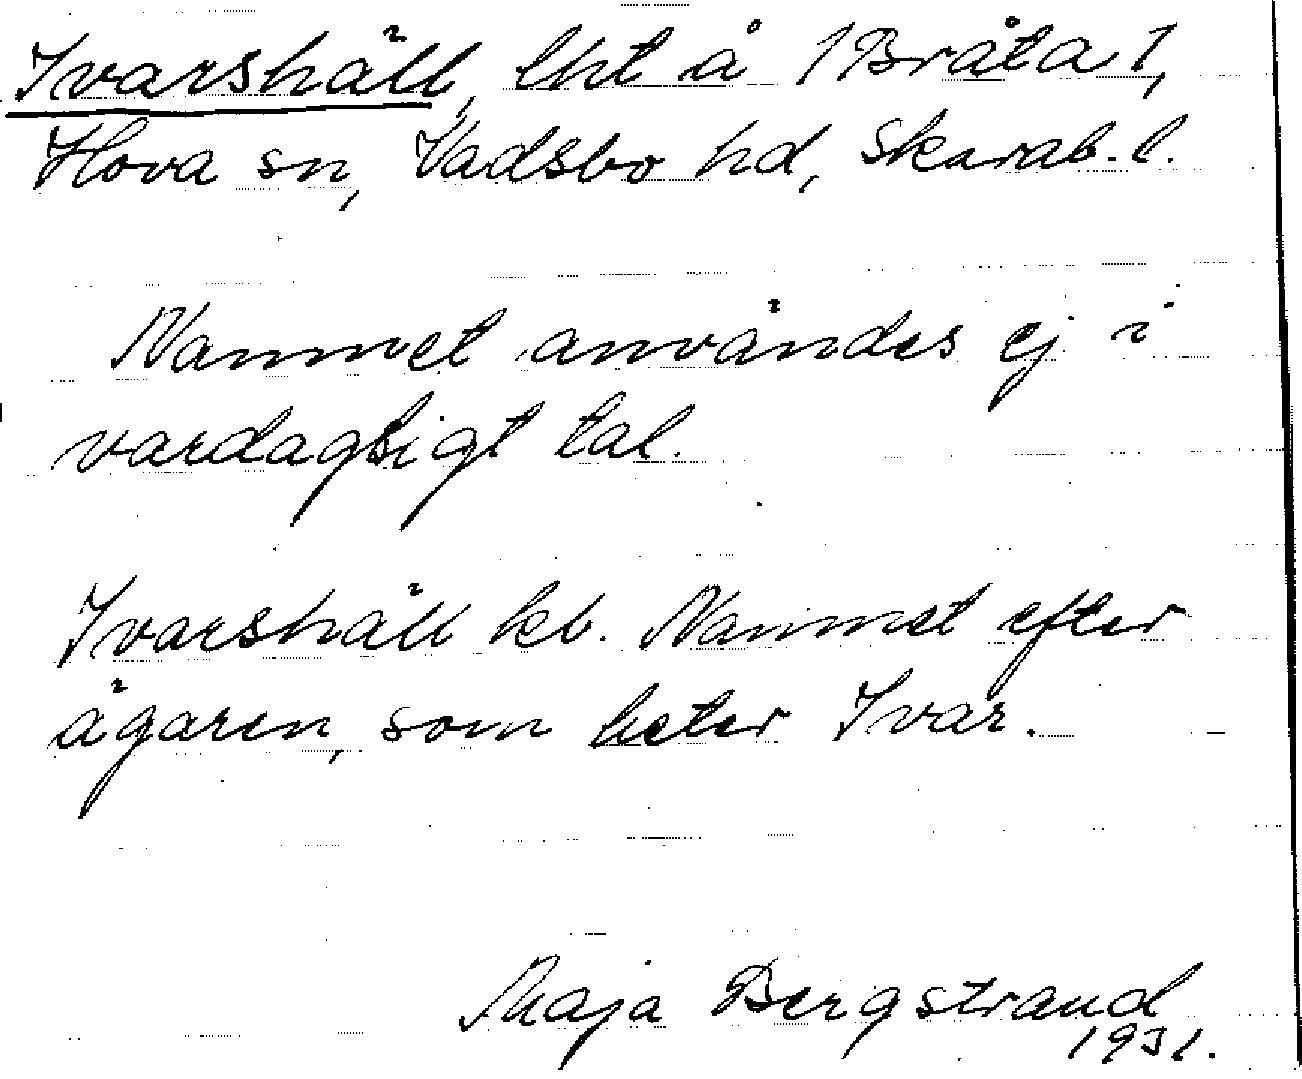 Ivarshäll, lht å 1 Bråta 1,
Hova sn, Vadsbo hd, Skarab. l.
Namnet användes ej i
vardagligt tal.
Ivarshäll kb. Namnet efter
ägaren, som heter Ivar.
Maja Bergstrand
1931.